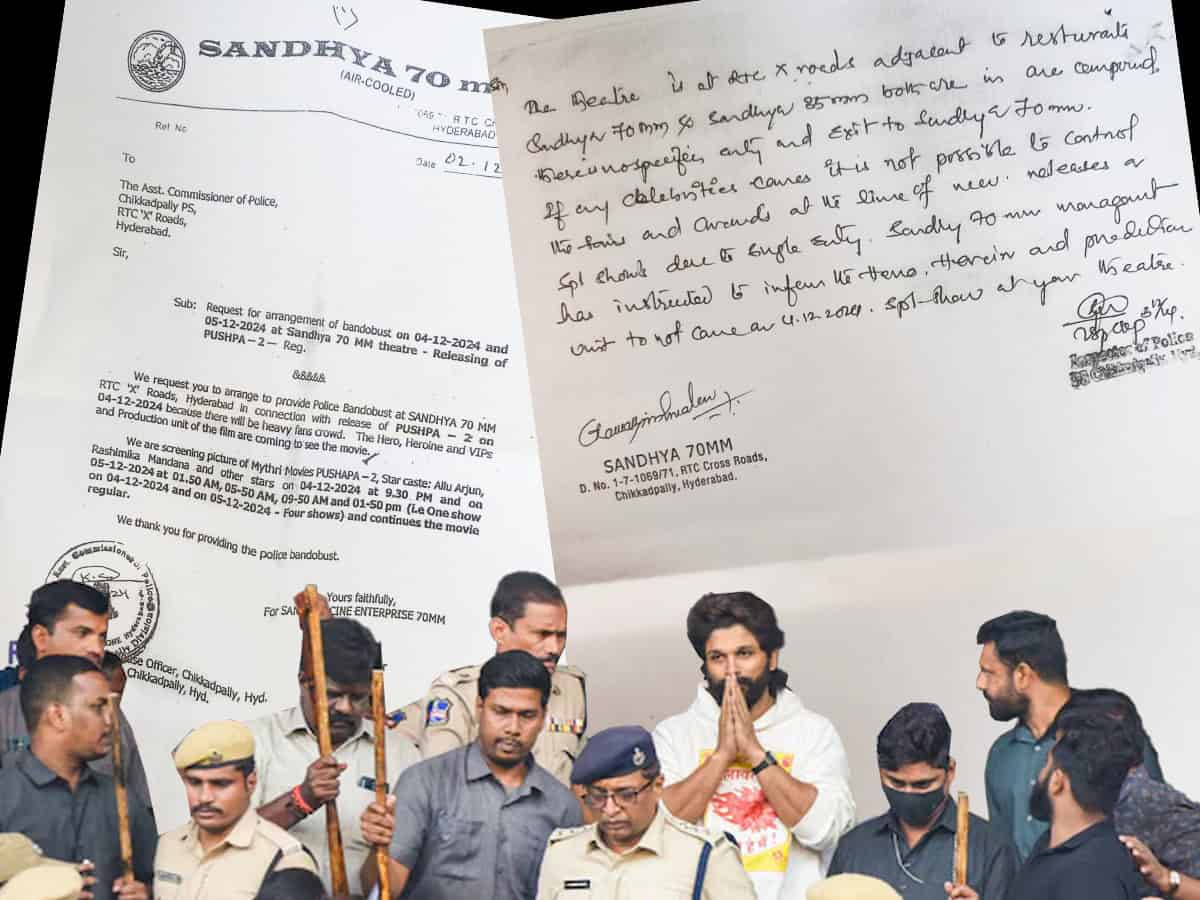 SANDHYA 70
(AIR-COOLED)
RTC
HYDERABAD
Ref No
Date 02.12
To
The Asst. Commissioner of Police,
Chikkadpally PS,
RTC 'X' Roads,
Hyderabad.
Sir,
Sub: Request for arrangement of bandobust on 04-12-2024 and
05-12-2024 at Sandhya 70 MM theatre - Releasing of
PUSHPA – 2 – Reg.
&&&&&
We request you to arrange to provide Police Bandobust at SANDHYA 70 MM
RTC 'X' Roads, Hyderabad in connection with release of PUSHPA – 2 on
04-12-2024 because there will be heavy fans crowd. The Hero, Heroine and VIPs
and Production unit of the film are coming to see the movie.
We are screening picture of Mythri Movies PUSHAPA – 2, Star caste: Allu Arjun,
Rashlmika Mandana and other stars on 04-12-2024 at 9.30 PM and on
05-12-2024 at 01.50 AM, 05-50 AM, 09-50 AM and 01-50 pm (Le One show
on 04-12-2024 and on 05-12-2024 - Four shows) and continues the movie
regular.
We thank you for providing the police bandobust.
Yours faithfully,
For CINE ENTERPRISE 70MM
Asst. Commissioner of Police
Officer, Chikkadpally, Hyd.
Chikkadpally, Hyd.
The theatre is at RTC X roads adjacent to
Sandhya 70MM Sandhya 35mm both are in
entry and exit to Sandhya 70mm.
If any celebrities comes it is not possible to control
the fans and crowds at the time of new releases or
Spl shows due to single entry. Sandhya 70 mm
has instructed to inform the Hero, Heroin and
unit to not come on 4.12.2024. Spl-show at your theatre.
Inspector of Police
SANDHYA 70MM
D. No. 1-7-1069/71, RTC Cross Roads,
Chikkadpally, Hyderabad.